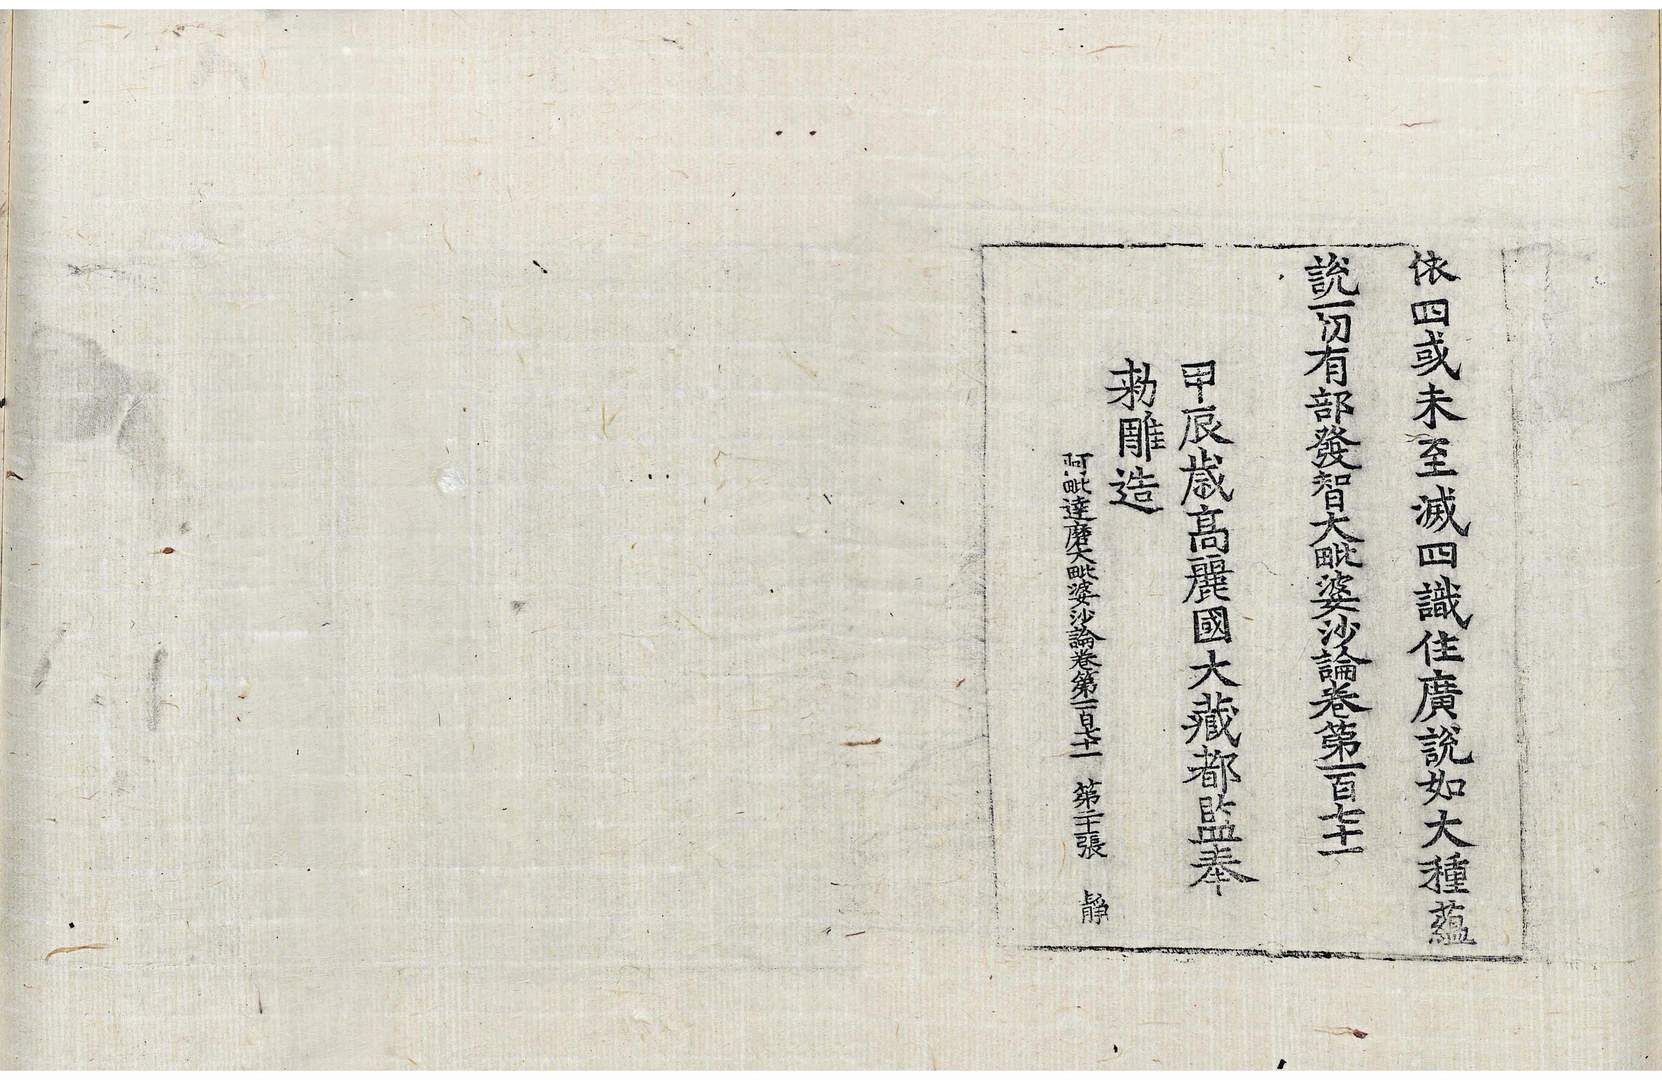 依四或未至滅四識住廣說如大種蘊
說一切有部發智大毗婆沙論卷第一百七十一
甲辰歲高麗國大藏都監奉
勑雕造
阿毗達磨大毗婆沙論卷第一百七十一 第二十張 靜